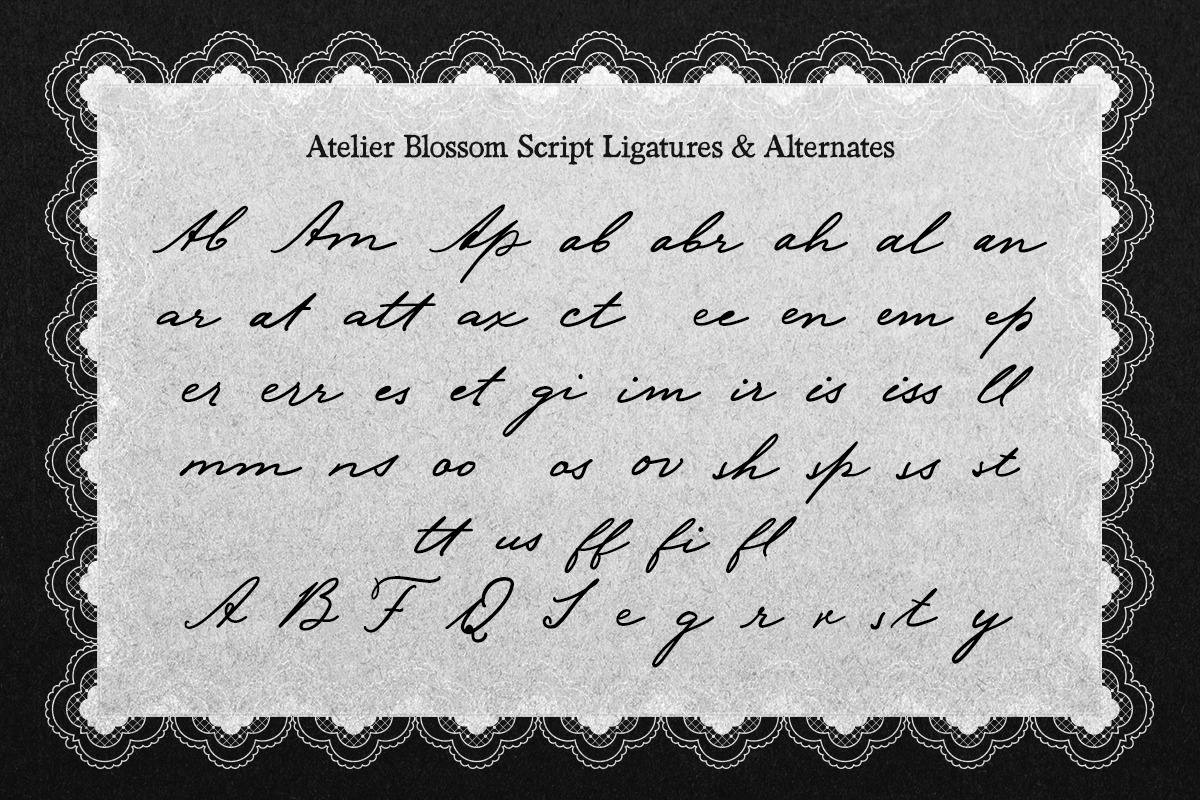 Atelier Blossom Script Ligatures & Alternates
Ab Am Ap ab abr ah al an
ar at att ax ct ee en em ep
er err es et gi im ir is iss ll
mm ns oo os ov sh sp ss st
tt us ff fi fl
A B F Q S e g r r s t y